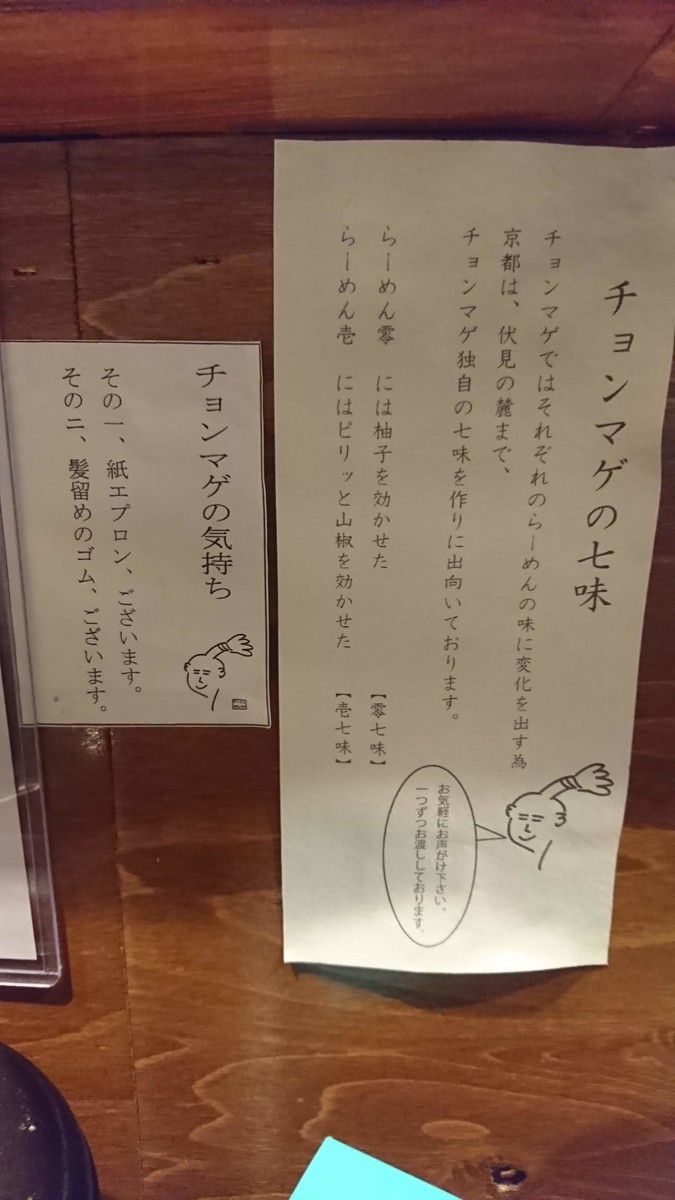 チョンマゲの七味
チョンマゲではそれぞれのらーめんの味に変化を出す為
京都は、伏見の麓まで、
チョンマゲ独自の七味を作りに出向いております。
らーめん零 には柚子を効かせた 【零七味】
らーめん壱 にはピリッと山椒を効かせた 【壱七味】
お気軽にお声がけ下さい。
一つずつお渡ししております。
チョンマゲの気持ち
その一、紙エプロン、ございます。
その二、髪留めのゴム、ございます。